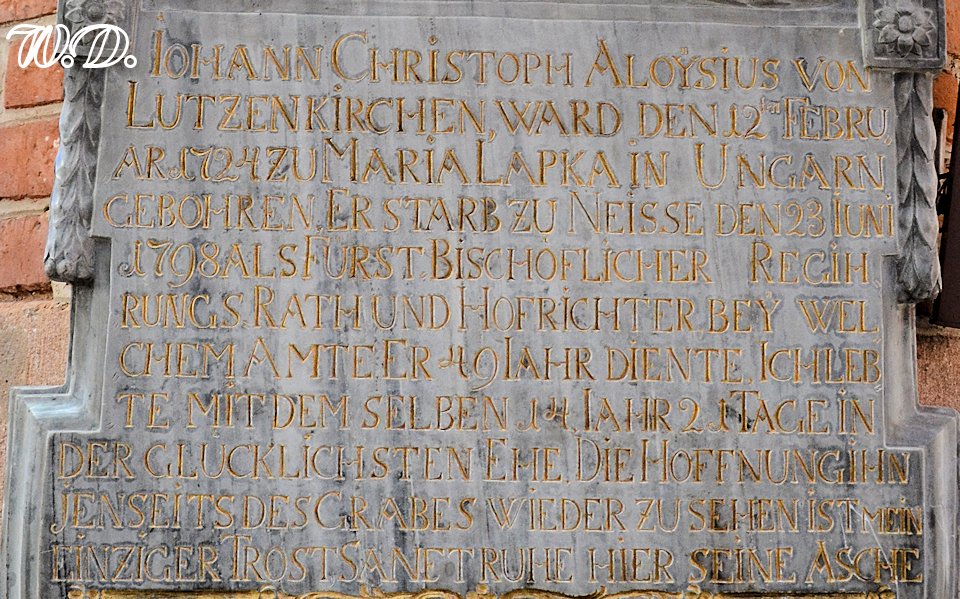 W.D.
IOHANN CHRISTOPH ALOŸSIUS VON
LUTZENKIRCHEN, WARD DEN 12ten FEBRU,
AR. 1724 ZU MARIA LAPKA IN UNGARN
GEBOHREN ERSTARB ZU NEISSE DEN 23 IUNI
1798 ALS FÜRST. BISCHOFLICHER REGIH
RUNGS RATH UND HOFRICHTER BEY WEL
CHEM AMTE ER 49 IAHR DIENTE. ICH LEB,
TE MIT DEM SELBEN 14. IAHR 21 TAGE IN
DER GLUCKLICHSTEN EHE. DIE HOFFNUNG IHN
JENSEITS DES GRABES WIEDER ZU SEHEN IST MEIN
EINZIGER TROST SANFT RUHE HIER SEINE ASCHE